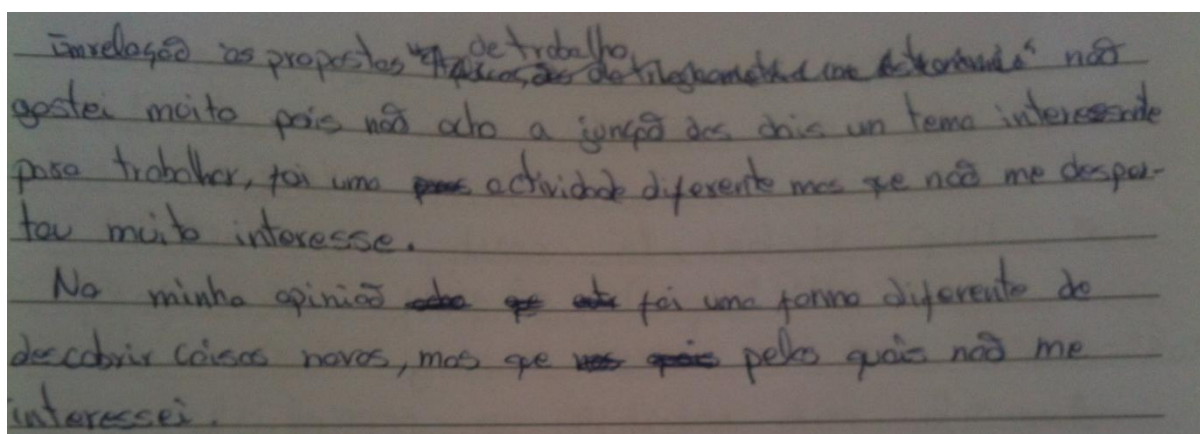 Em relação as propostas de trabalho não
gostei muito pois não acho a junção dos dois un tema interessante
para trabalhar, foi uma actividade diferente mas que não me desper-
tou muito interesse.
Na minha opinião foi uma forma diferente de
descobrir coisas novas, mas que pelos quais não me
interessei.